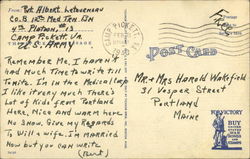 From: Pvt Albert Letourneau
Co.B 12th Med TRN. BN
4th Platoon, #13
Camp Pickett, Va
U.S. ARMY
CAMP PICKETT, VA
Free
POST CARD
Remember Me, I haven't
had Much Time to write till
Tonite. I'm in the Medical Camp
I like it very much There's
Lot of Kids from Portland
Here, Nice and warm here
No Snow. Give my Regards
To Will & wife. I'm Married
Now but you can write
(Bert)
Mr + Mrs Harold Wakefield
31 Vesper Street
Portland
Maine
FOR VICTORY
BUY
UNITED
STATES
WAR
BONDS
AND
STAMPS